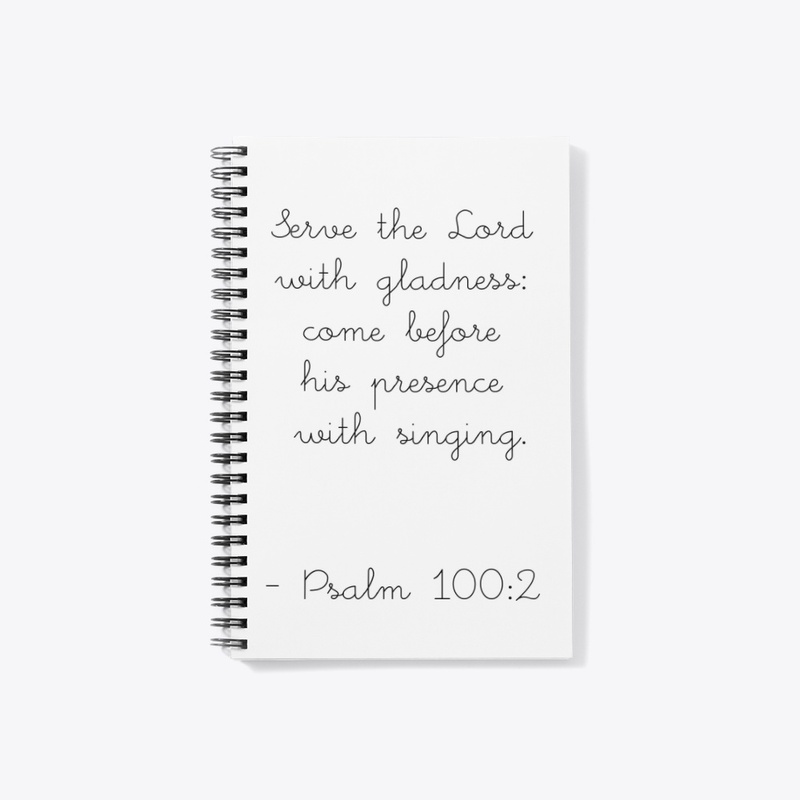 Serve the Lord
with gladness:
come before
his presence
with singing.
- Psalm 100:2